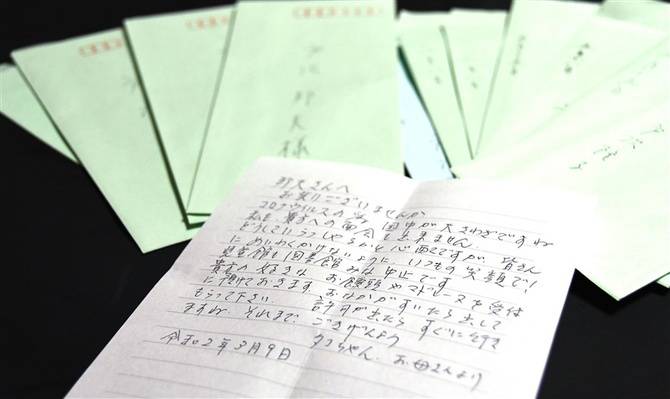 邦夫様
邦夫さんへ
お変りございませんか
コロナウイルスの為 国中が大さわぎですね
私も貴方への面会も出来ません
どうしていらっしゃるかと心配ですが、皆さん
にめいわくかけないように いつもの笑顔で!
も図書館もみな中止です
貴方の好きな お饅頭やマドレーヌを受付
に預けておきます。おなかがすいたら出して
もらって下さい 許可が出たらすぐに
ますね それまで ごきげんよう
令和2年3月9日 お母さんより